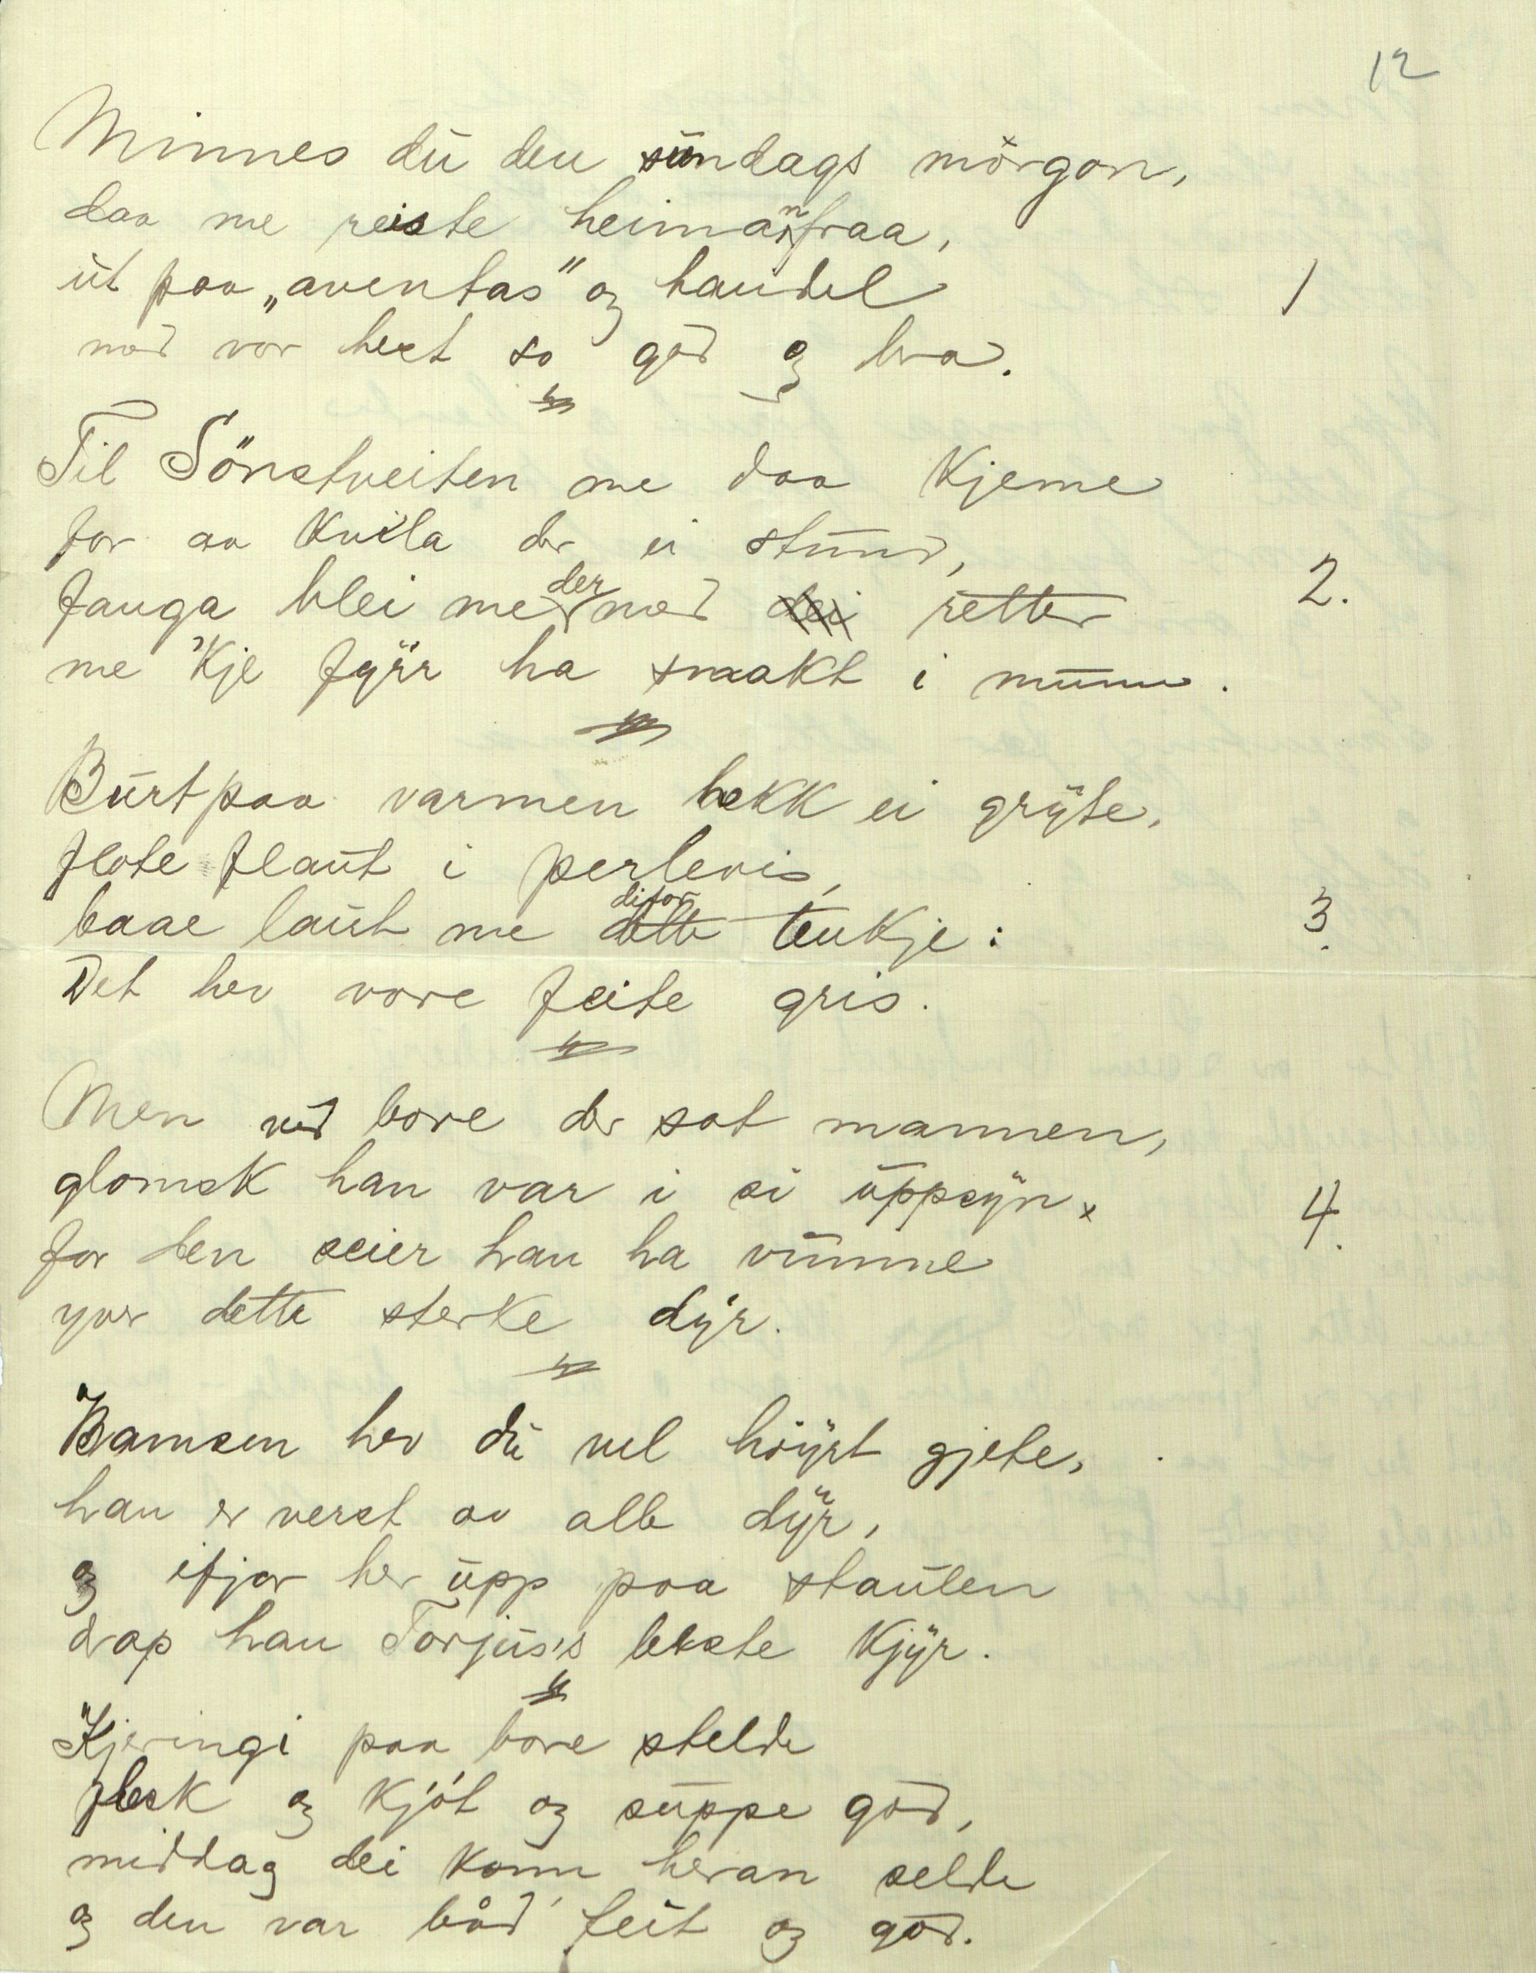 12
Minnes du den sundags mörgon,
daa me reiste heimanfraa,
ut paa „aventas" og handel
med vor hest so god og bra.
1
Til Sönstveiten me daa kjeme
for aa kvila der ei stund,
fanga blei me der med dei retter
me 'kje fyrr ha smakt i munn.
2.
Burtpaa varmen hekk ei gryte,
flote flaut i perlevis,
baae laut me difor dette tenkje:
Det hev vore feite gris.
3.
Men ved bore der sat mannen,
glomsk han var i si uppsyn,
for den seier han ha vunne
yver dette sterke dyr.
4.
"Bamsen hev du vel höyrt gjete,
han er verst av alle dyr",
og ifjor her upp paa staulen
drap han Torjus's beste kjyr.
"Kjeringi paa bore stelde
flesk og kjöt og suppe god,
middag dei konn heran selde
og den var båd' feit og god.